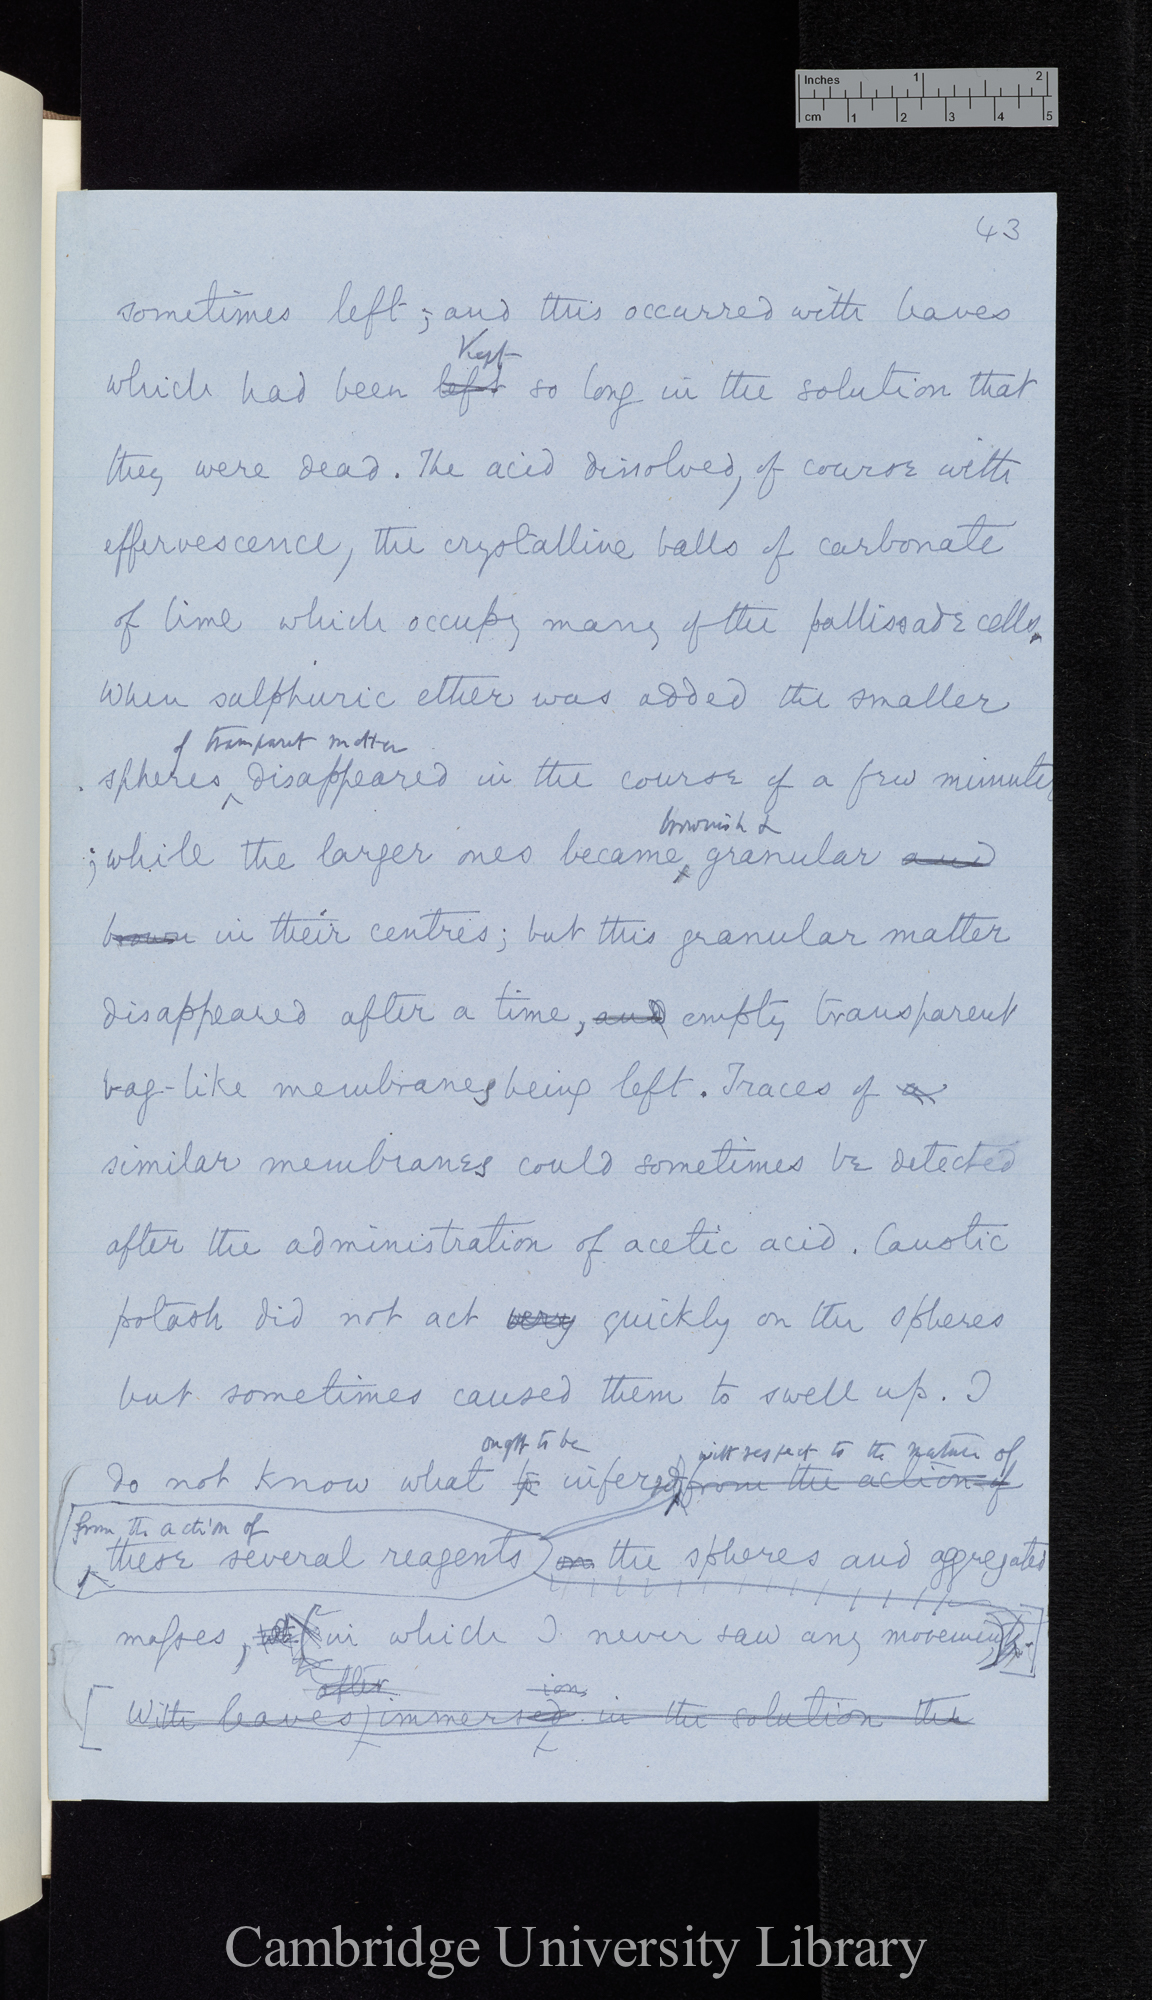 Inches 1 2
cm 1 2 3 4 5
43
sometimes left; and this occurred with leaves
Kept
which had been left so long in the solution that
they were dead. The acid dissolved, of course with
effervescence, the crystalline balls of carbonate
of lime which occupy many of the pallissade cells.
When sulphuric ether was added the smaller
of transparent matter
spheres disappeared in the course of a few minutes
brownish &
; while the larger ones became granular and
brown in their centres; but this granular matter
disappeared after a time, and empty transparent
bag-like membranes being left. Traces of a
similar membranes could sometimes be detected
after the administration of acetic acid. Caustic
potash did not act very quickly on the spheres
but sometimes caused them to swell up. I
ought to be with respect to the nature of
do not know what to inferred from the action of
from the action of
these several reagents on the spheres and aggregated
masses, in which I never saw any movement
after ion
[With leaves immersed in the solution the
Cambridge University Library